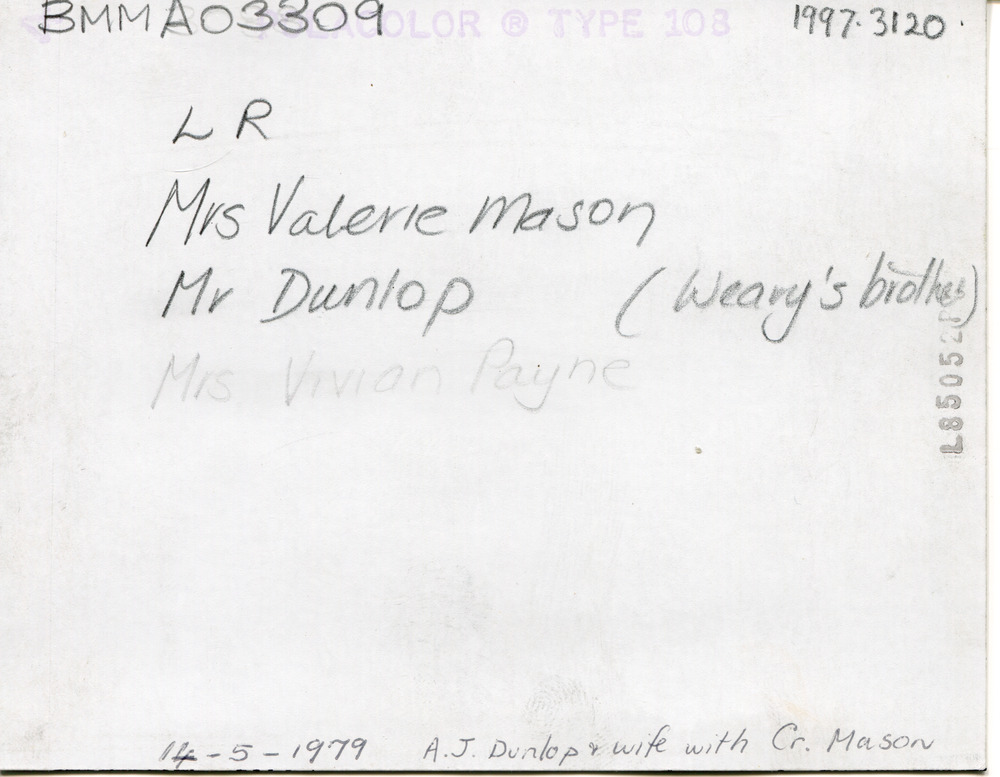 BMMA03309 POLACOLOR ® TYPE 108 1997.3120
L R
Mrs Valerie Mason
Mr Dunlop (Weary's brother)
Mrs Vivian Payne
L85052
14-5-1979 A.J. Dunlop & wife with Cr. Mason